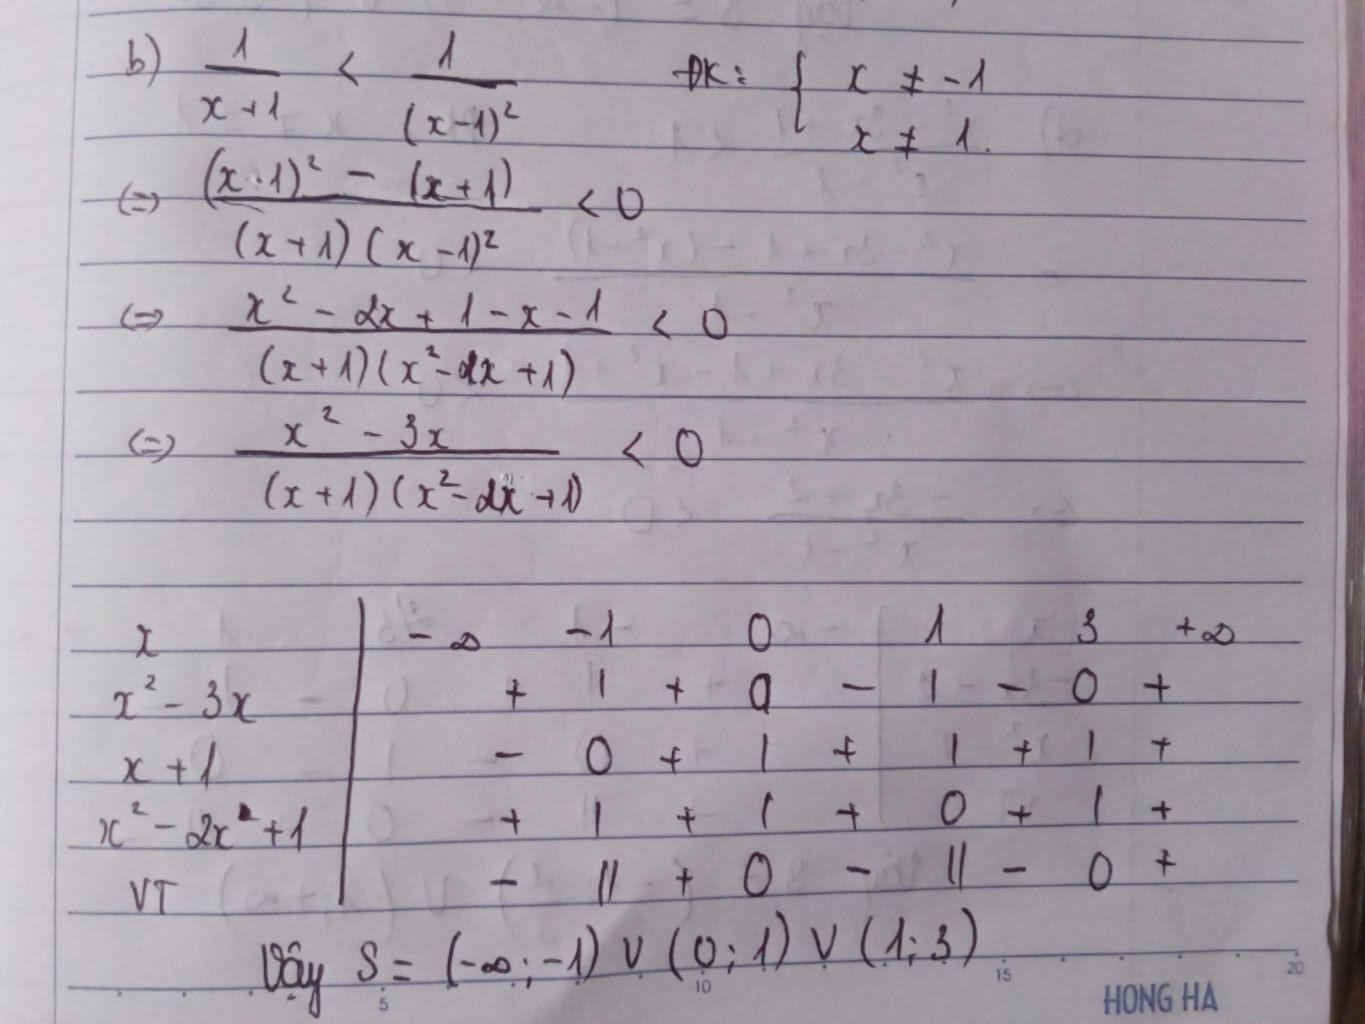 b) 1/(x+1) < 1/(x-1)² ĐK: { x ≠ -1
x ≠ 1.
(=) ((x-1)² - (x+1))/((x+1)(x-1)²) < 0
(=) (x² - 2x + 1 - x - 1)/((x+1)(x²-2x+1)) < 0
(=) (x² - 3x)/((x+1)(x²-2x+1)) < 0
x | -∞ -1 0 1 3 +∞
x² - 3x | + | + 0 - | - 0 +
x + 1 | - 0 + | + | + | +
x² - 2x + 1 | + | + | + 0 + | +
VT | - || + 0 - || - 0 +
Vậy S = (-∞; -1) ∪ (0; 1) ∪ (1; 3)
5 10 15 20
HONG HA